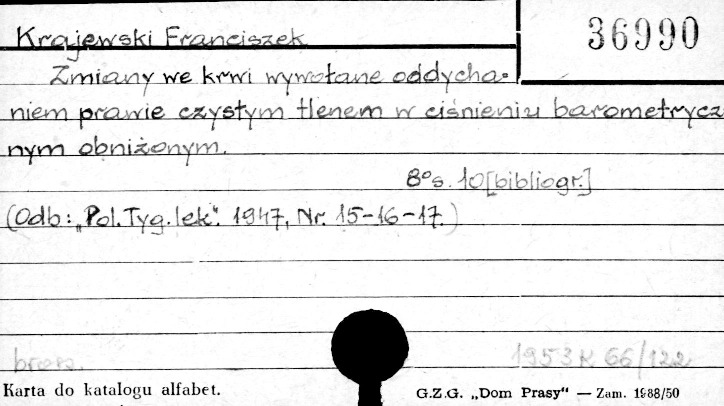 Krajewski Franciszek
36990
Zmiany we krwi wywołane oddycha-
niem prawie czystym tlenem w ciśnieniu barometrycz
nym obniżonym.
8° s. 10 [bibliogr.]
(Odb: „Pol. Tyg. lek". 1947, Nr. 15-16-17.)
brosz.
1953 K 66/122
Karta do katalogu alfabet.
G.Z.G. „Dom Prasy" — Zam. 1988/50